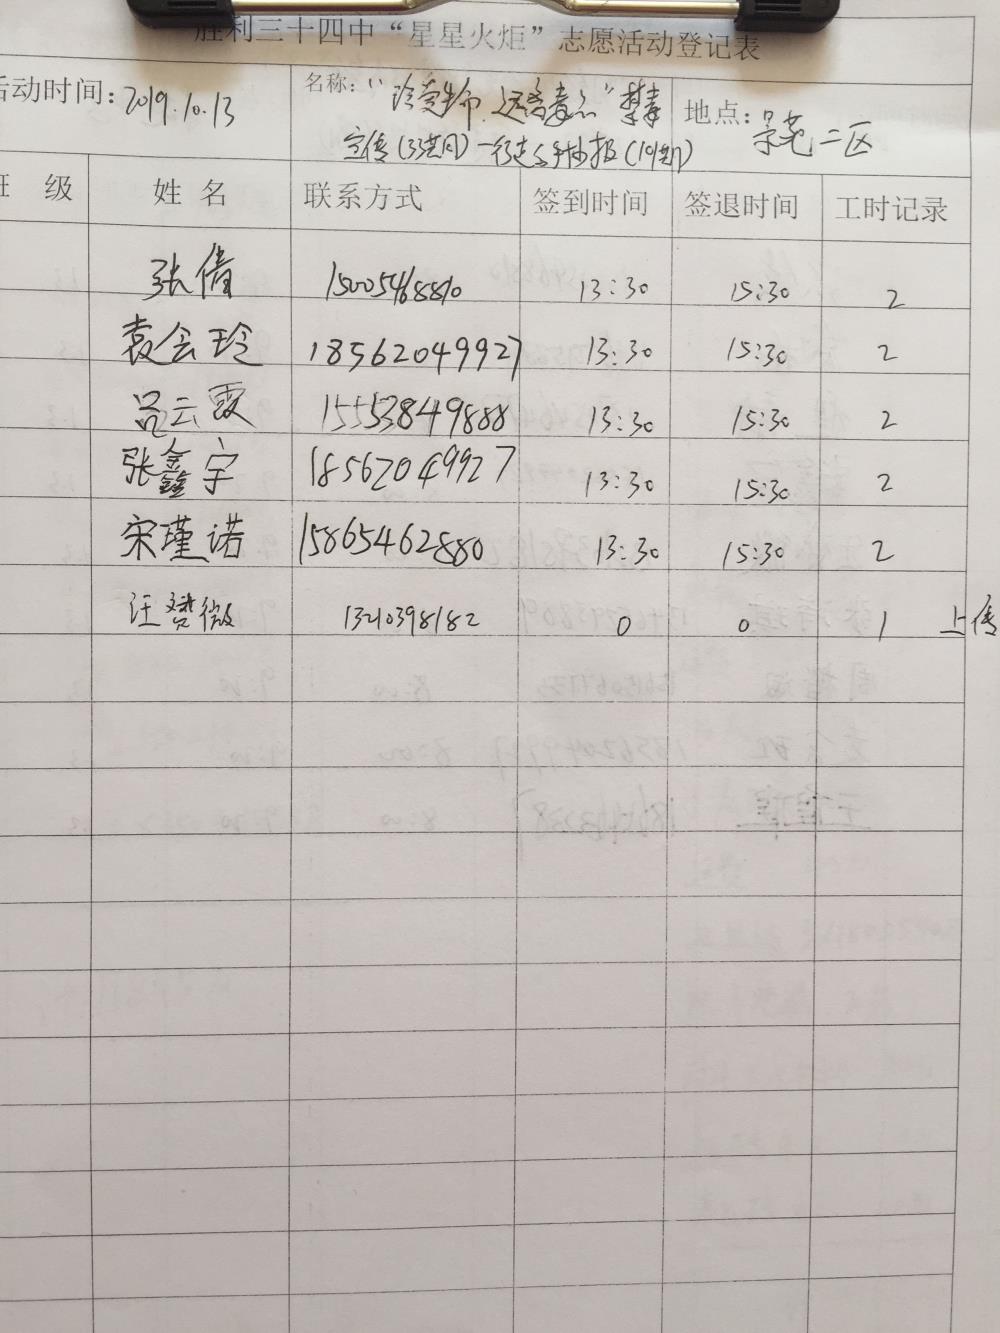 胜利三十四中“星星火炬”志愿活动登记表
活动时间：2019.10.13
名称：“珍爱生命.远离毒品”禁毒
宣传
地点：景苑二区
班 级 姓 名 联系方式 签到时间 签退时间 工时记录
张倩 15005468810 13:30 15:30 2
袁会玲 18562049927 13:30 15:30 2
吕云霞 15553849888 13:30 15:30 2
张鑫宇 18562049927 13:30 15:30 2
宋瑾诺 15865462880 13:30 15:30 2
汪赟微 13210398182 0 0 1 上传